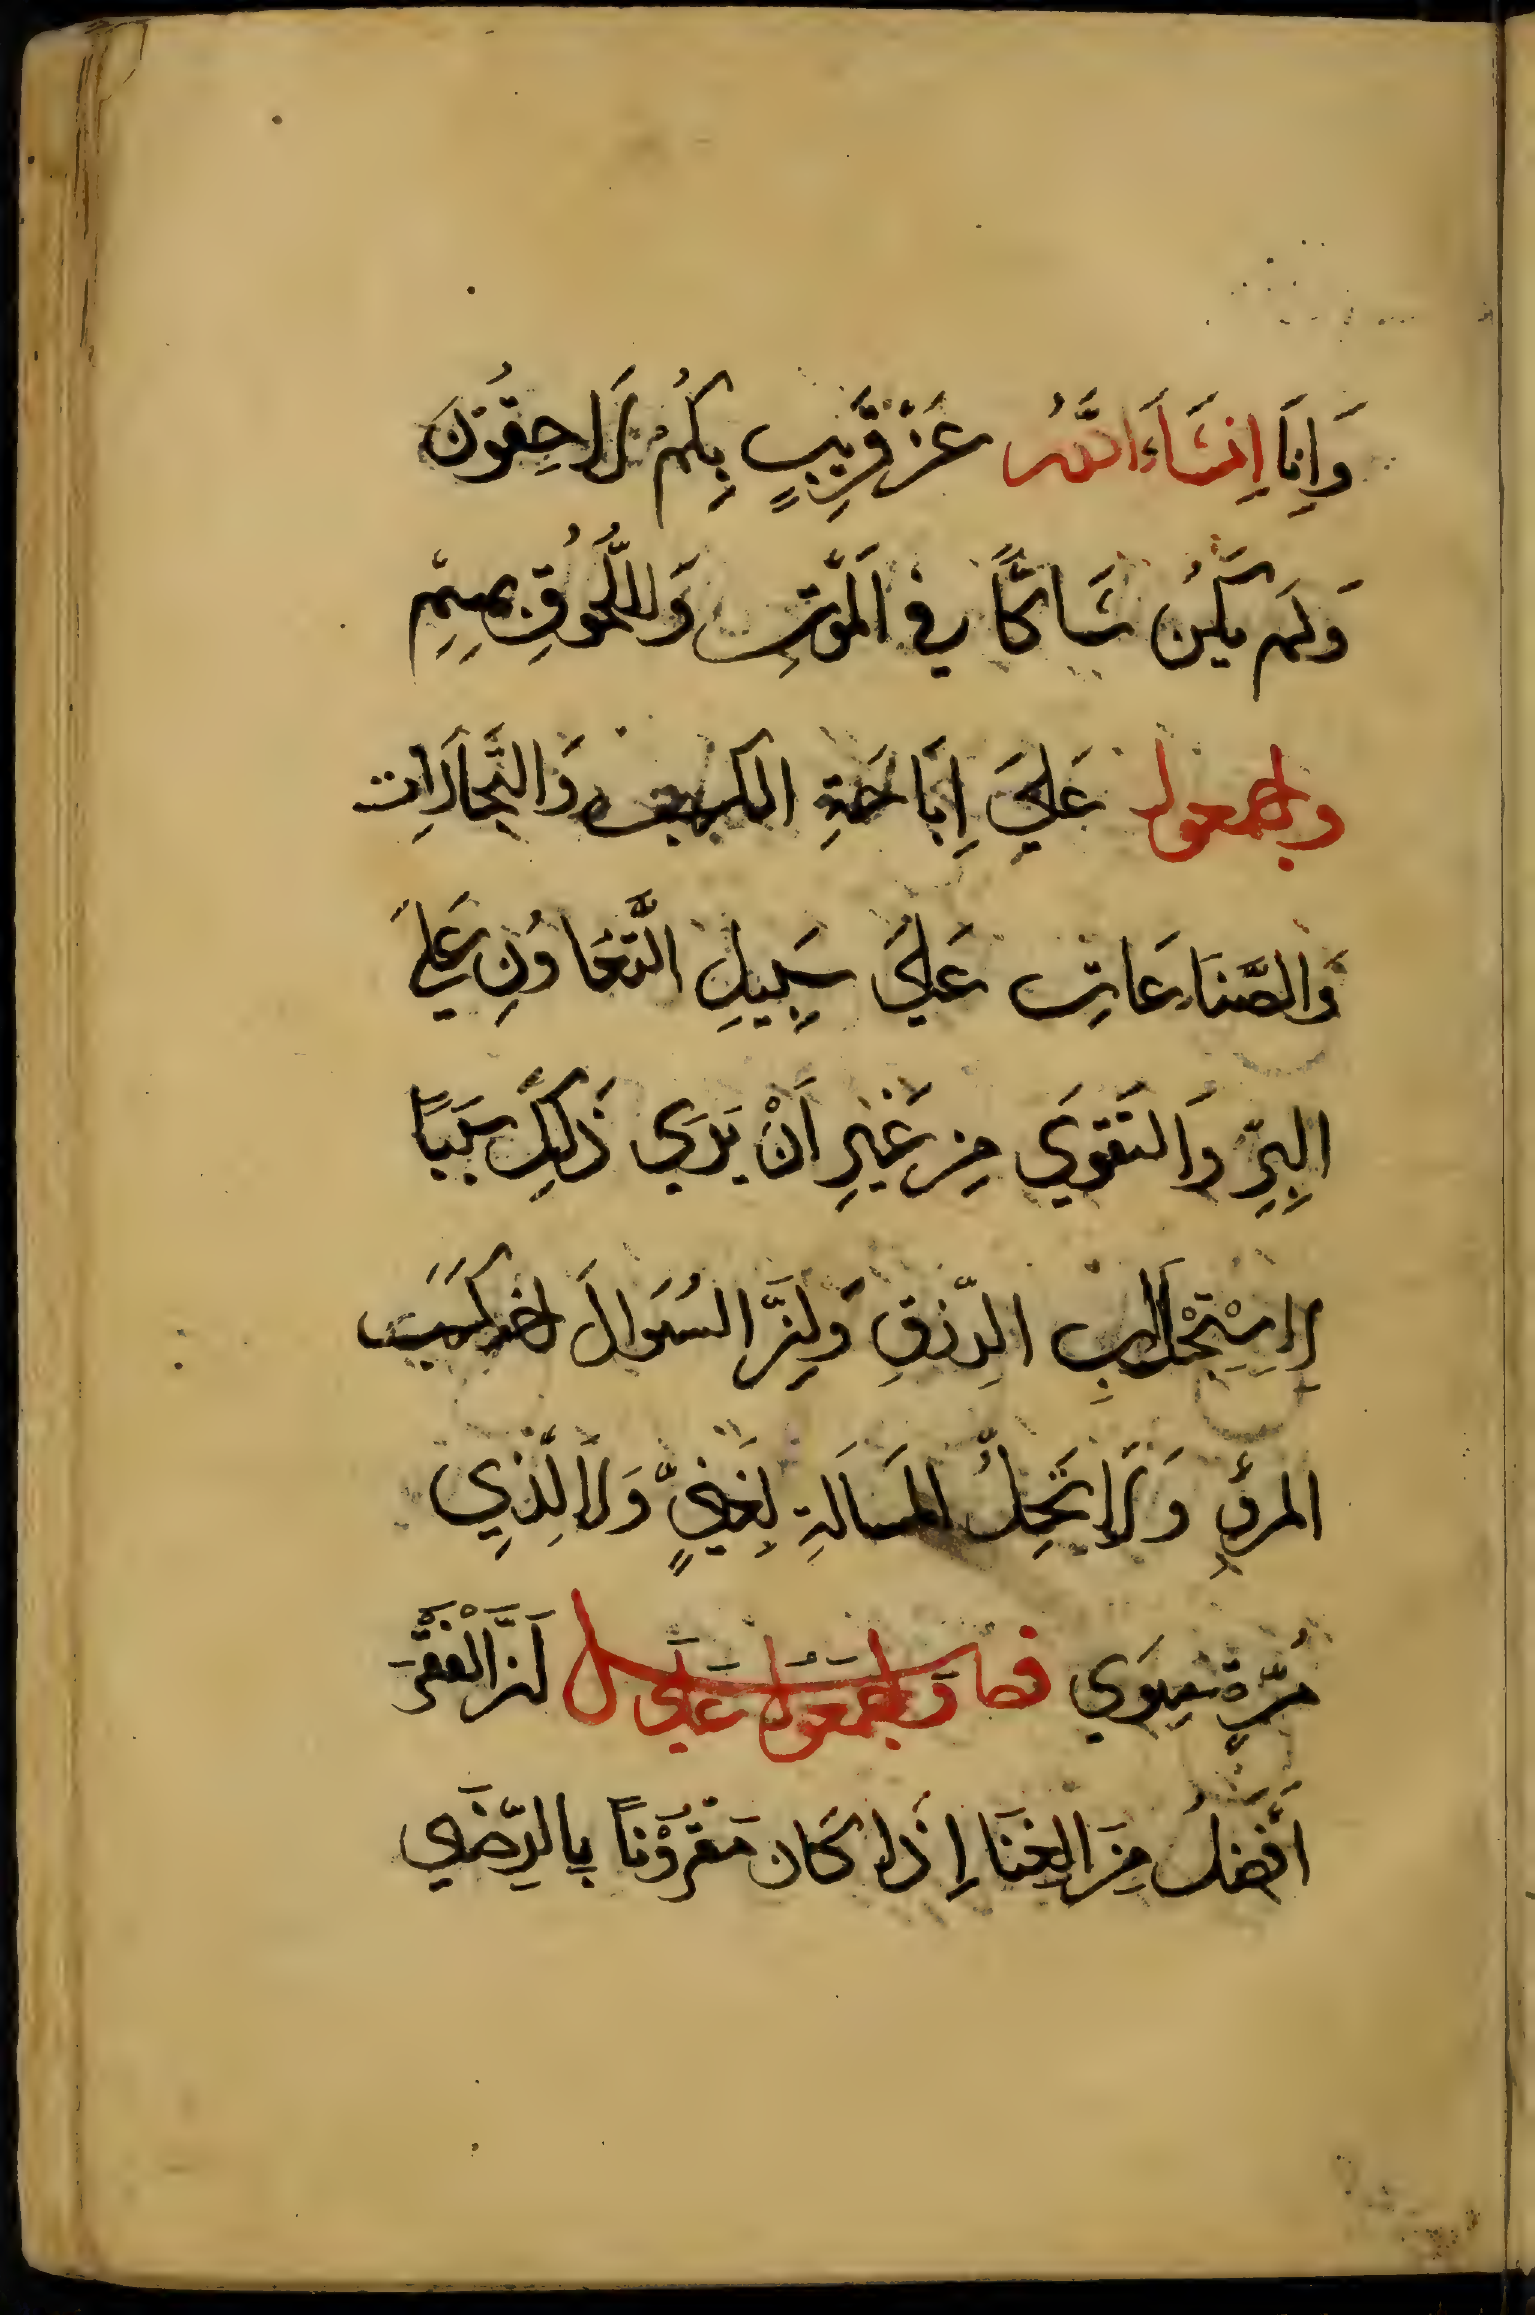 وَاِنَّا اِنشَاءَ اللَّهُ عَنْ قَرِيبٍ بِكُمْ لَاحِقُوْنَ
وَلَم يَكُن شَاكًّا فِي الْمَوْتِ وَاللُّحُوْقِ بِهِمِ
واجمعوا عَلَى اِبَاحَةِ الكسب وَالتِّجَارَات
وَالصِّنَاعَاتِ عَلَى سَبِيلِ التَّعَاوُنِ عَلَى
البِرِّ وَالتَقْوَي مِن غَيْرِ اَنْ يَرَي ذَلِكَ سَبَبًا
لِاسْتِجْلَابِ الرِّزقِ وَاِنَّ السُوَالَ اخر كَسَب
المرؤ وَلَا تَحِلُّ المَسَالَةِ لِغَنِيٍّ وَلَا لِذِي
مُرَّةٍ سِوَي فصل وَاجمَعُوا عَلَى اَنَّ الْفَقْرَ
اَفْضَلُ مِنَ الغِنَا اِذَا كَان مَقْرُوْنًا بِالرِّضَي